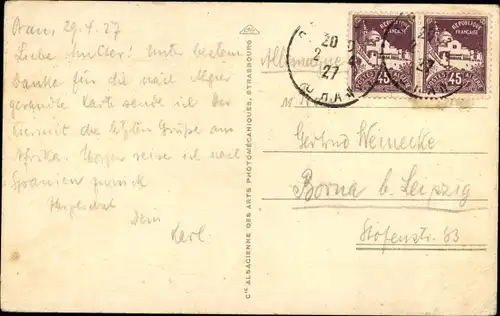 Oran, 29.4.27
Liebe Mutter! Unter bestem
Danke für die nach Algier
gesandte Karte sende ich Dir
hiermit die letzten Grüße aus
Afrika. Morgen reise ich nach
Spanien zurück
Herzlichst
Dein
Karl.
Cie ALSACIENNE DES ARTS PHOTOMÉCANIQUES, STRASBOURG
20
27
ORAN
RÉPUBLIQUE FRANÇAISE
POSTES
45
RÉPUBLIQUE FRANÇAISE
45
Allemagne
Gertrud Weinecke
Borna b. Leipzig
63